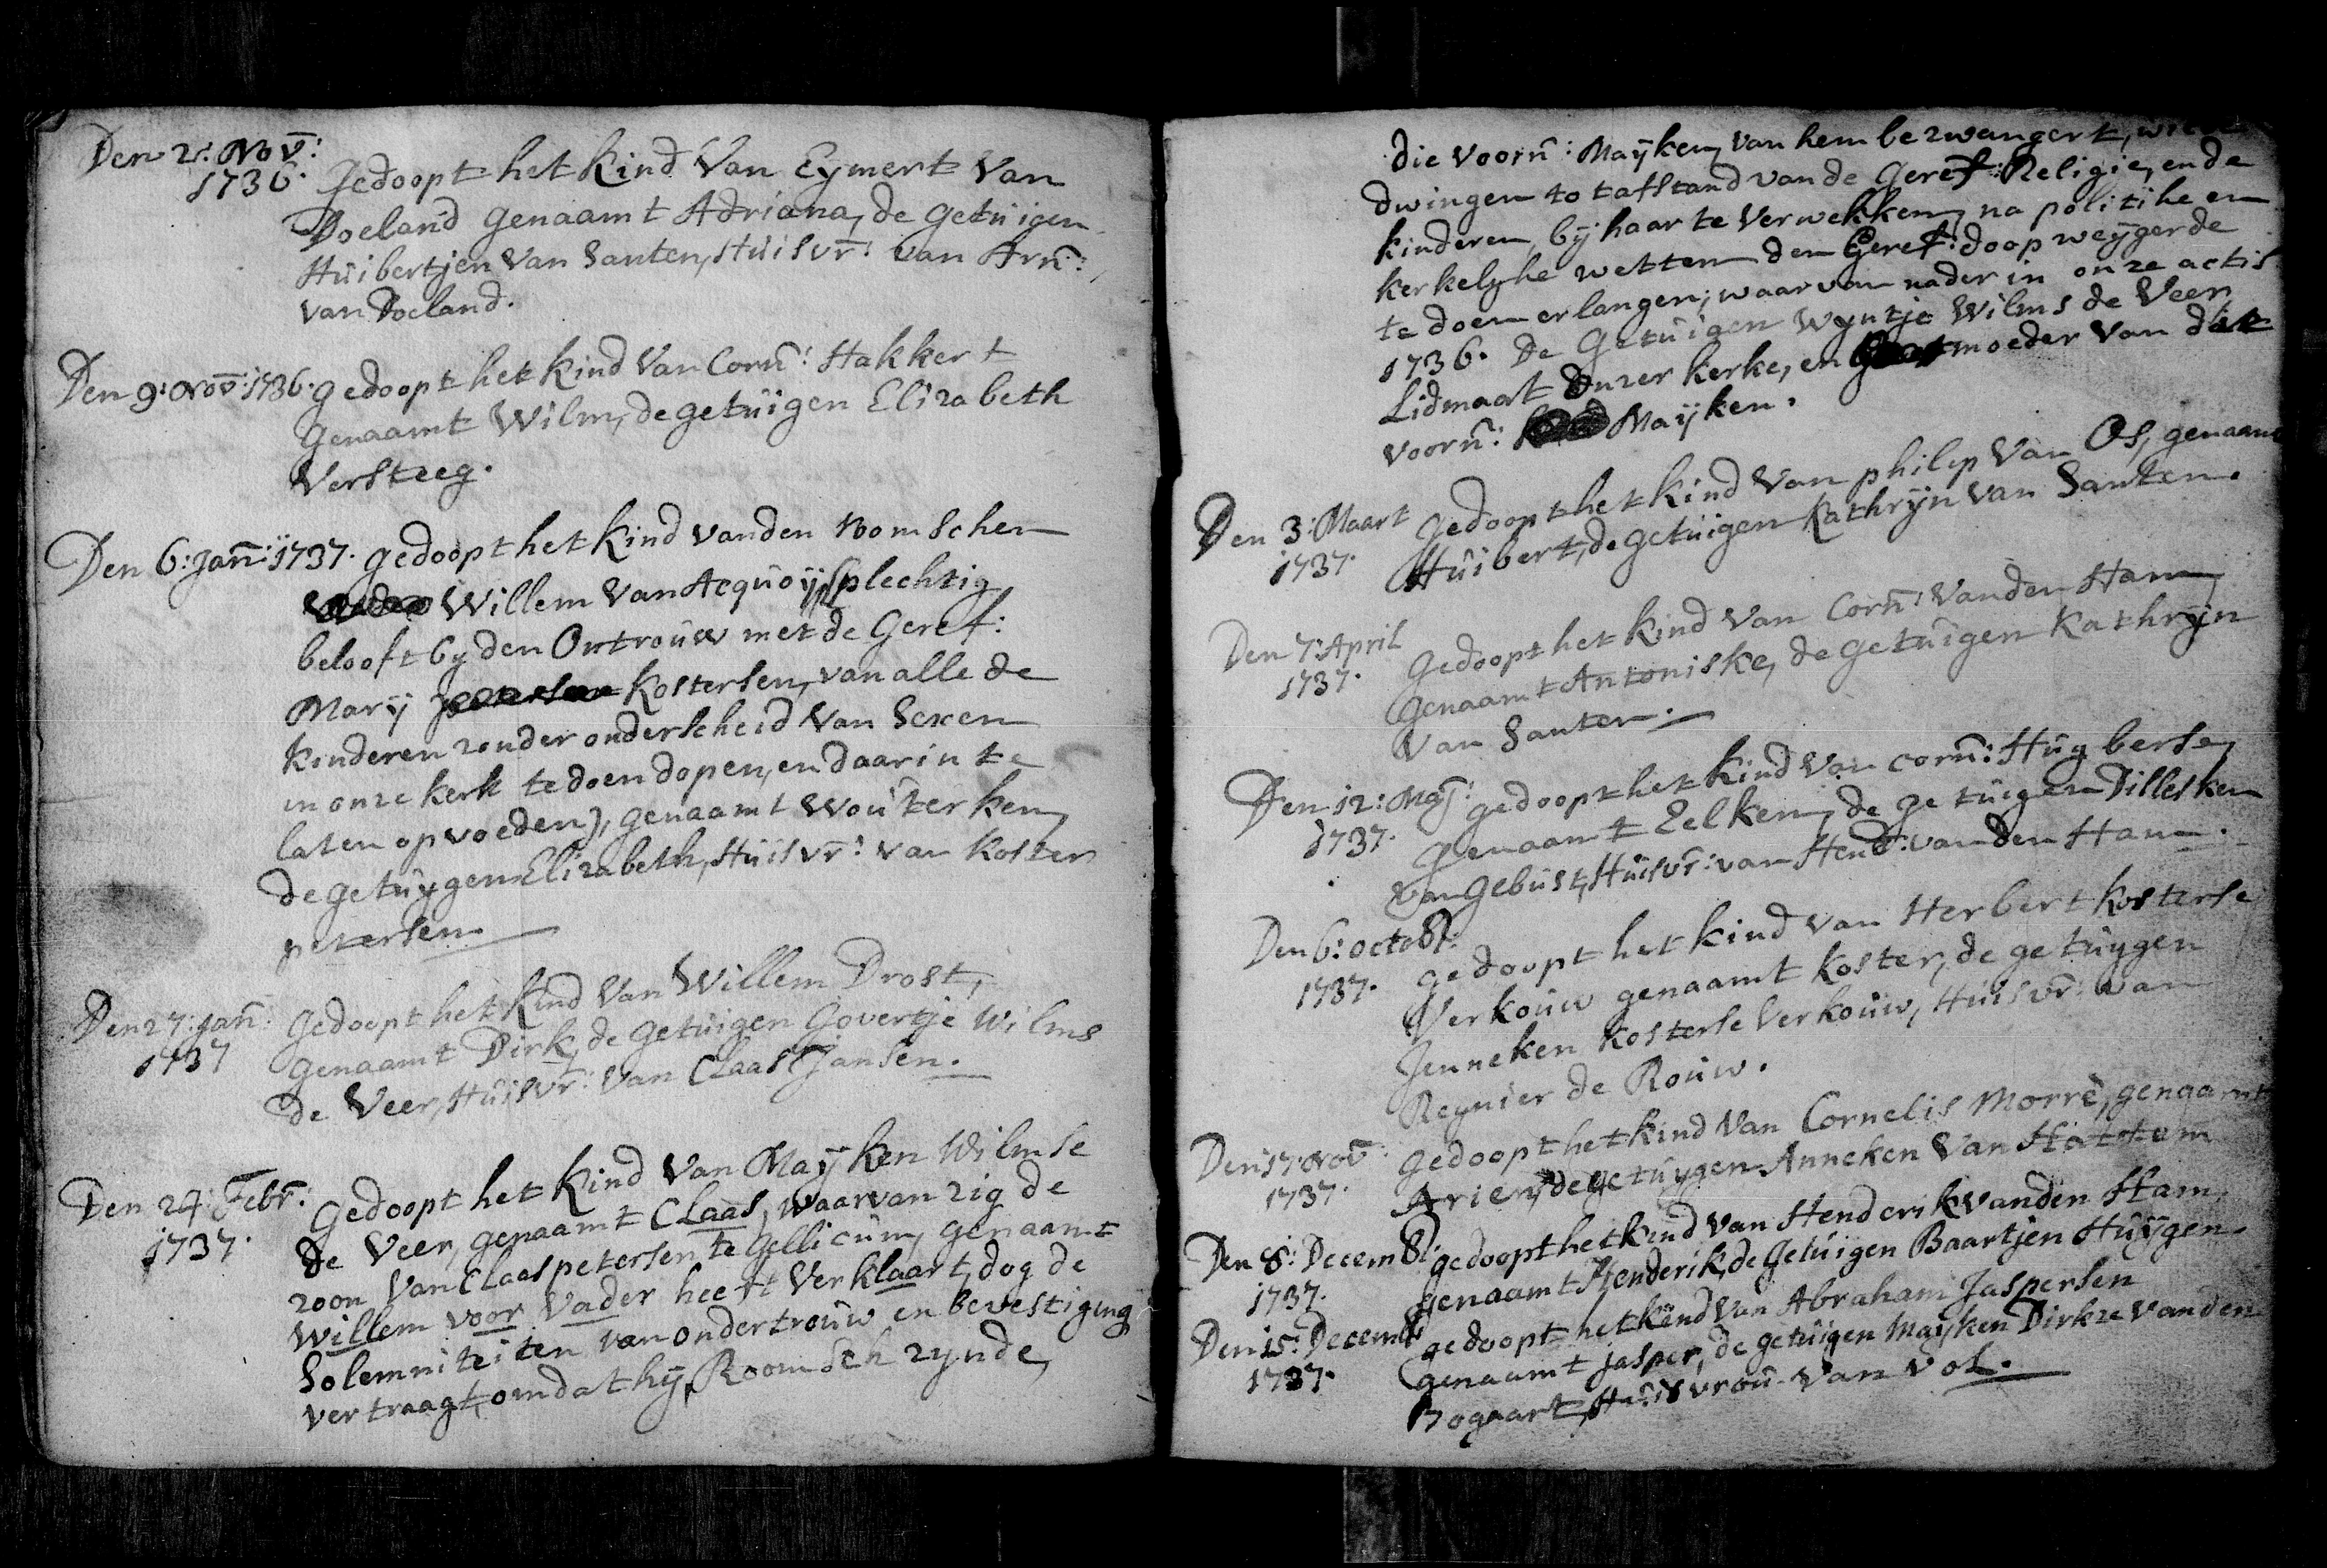 Den 2: Nov:
1736. Gedoopt het kind Van Eymert Van
Doeland genaamt Adriana, de getuigen
Huibertjen Van Santen, Huisvr: van Arn:
van Doeland.
Den 9: Nov: 1736. gedoopt het kind Van Corn: Hakkert
genaamt Wilm, de getuigen Elizabeth
Versteeg.
Den 6: Jan: 1737. gedoopt het kind vanden roomschen
Willem Van Acquoij, (plechtig
belooft by den Ontrouw met de Geref:
Marij Kostersen, van alle de
kinderen zonder onderscheid Van Sexen
in onze kerk te doen dopen, en daar in te
laten opvoeden), genaamt Wouterken,
de getuygen Elizabeth, Huisvr: van Koster
petersen.
Den 27: Jan: gedoopt het kind Van Willem Drost,
1737 genaamt Dirk, de getuigen Govertje Wilms
de Veer, Huisvr: Van Claas Jansen.
Den 24: Febr: gedoopt het kind Van Mayken Wilmse
1737. de Veer, genaamt Claas, waarvan zig de
zoon Van Claas petersen te Gellicum, genaamt
Willem voor Vader heeft Verklaart, dog de
Solemniteiten van ondertrouw en bevestiging
vertraagt, omdat hy, Roomsch zynde,
die voorn: Mayken, van hem bezwangert,
dwingen tot afstand van de Geref: Religie, en de
kinderen, by haar te Verwekken, na politike en
kerkelyke wetten den Geref: doop weygerde
te doen erlangen; waar van nader in onze actis
1736. De Getuigen Wyntje Wilms de Veer,
Lidmaat Onzer kerke, en moeder Van
voorn: Mayken.
Den 3: Maart gedoopt het kind Van philip Van Os, genaamt
1737. Huibert, de getuigen Kathryn Van Santen.
Den 7: April gedoopt het kind Van Corn: Vanden Ham,
1737. genaamt Antoniske, de getuigen Kathryn
Van Santen.
Den 12: May: gedoopt het kind Van Corn: Hugberse,
1737. genaamt Eelken, de getuigen Dillesken
Van Gebust, Huisvr: van Hend: vanden Ham.
Den 6: octobr:
1737. gedoopt het kind Van Herbert kosterse
Verkouw genaamt koster, de getuygen
Jenneken kosterse Verkouw, Huisvr: van
Reynier de Rouw.
Den 17: Nov: gedoopt het kind Van Cornelis Morrè, genaamt
1737. Arien, de getuygen Anneken Van Hattem
Den 8: Decemb: gedoopt het kind Van Henderik vanden Ham,
1737. genaamt Henderik, de getuigen Baartjen Huygen.
Den 15: Decemb: gedoopt het kind Van Abraham Jaspersen
1737. genaamt Jasper, de getuigen Mayken Dirkze Vanden
Bogaart, Huisvrou Van Vos.